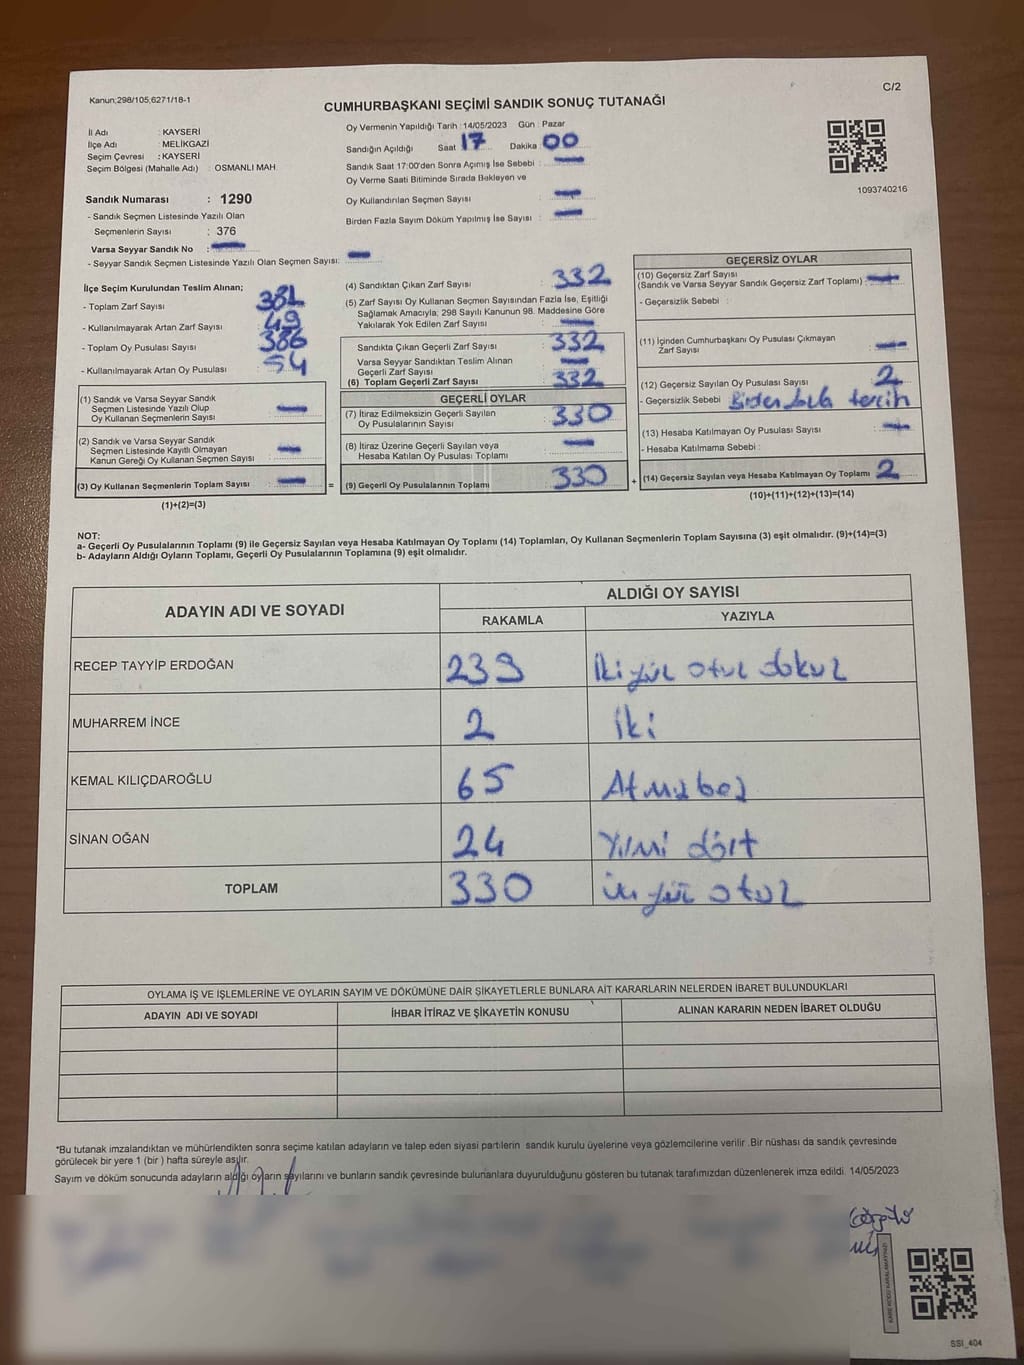 Kanun;298/105;6271/18-1
C/2
CUMHURBAŞKANI SEÇİMİ SANDIK SONUÇ TUTANAĞI
İl Adı : KAYSERİ
İlçe Adı : MELİKGAZİ
Seçim Çevresi : KAYSERİ
Seçim Bölgesi (Mahalle Adı) : OSMANLI MAH
Oy Vermenin Yapıldığı Tarih :14/05/2023 Gün : Pazar
Sandığın Açıldığı Saat 17 Dakika 00
Sandık Saat 17:00'den Sonra Açımış İse Sebebi : —
Oy Verme Saati Bitiminde Sırada Bekleyen ve
Oy Kullandırılan Seçmen Sayısı : —
Birden Fazla Sayım Döküm Yapılmış İse Sayısı : —
1093740216
Sandık Numarası : 1290
- Sandık Seçmen Listesinde Yazılı Olan
Seçmenlerin Sayısı : 376
Varsa Seyyar Sandık No : —
- Seyyar Sandık Seçmen Listesinde Yazılı Olan Seçmen Sayısı: —
İlçe Seçim Kurulundan Teslim Alınan;
- Toplam Zarf Sayısı : 381
- Kullanılmayarak Artan Zarf Sayısı : 49
- Toplam Oy Pusulası Sayısı : 386
- Kullanılmayarak Artan Oy Pusulası : 54
(1) Sandık ve Varsa Seyyar Sandık
Seçmen Listesinde Yazılı Olup
Oy Kullanan Seçmenlerin Sayısı : —
(2) Sandık ve Varsa Seyyar Sandık
Seçmen Listesinde Kayıtlı Olmayan
Kanun Gereği Oy Kullanan Seçmen Sayısı : —
(3) Oy Kullanan Seçmenlerin Toplam Sayısı : — =
(1)+(2)=(3)
(4) Sandıktan Çıkan Zarf Sayısı : 332
(5) Zarf Sayısı Oy Kullanan Seçmen Sayısından Fazla İse, Eşitliği
Sağlamak Amacıyla; 298 Sayılı Kanunun 98. Maddesine Göre
Yakılarak Yok Edilen Zarf Sayısı : —
Sandıkta Çıkan Geçerli Zarf Sayısı : 332
Varsa Seyyar Sandıktan Teslim Alınan
Geçerli Zarf Sayısı : —
(6) Toplam Geçerli Zarf Sayısı : 332
GEÇERLİ OYLAR
(7) İtiraz Edilmeksizin Geçerli Sayılan
Oy Pusulalarının Sayısı : 330
(8) İtiraz Üzerine Geçerli Sayılan veya
Hesaba Katılan Oy Pusulası Toplamı : —
(9) Geçerli Oy Pusulalarının Toplamı : 330 +
GEÇERSİZ OYLAR
(10) Geçersiz Zarf Sayısı
(Sandık ve Varsa Seyyar Sandık Geçersiz Zarf Toplamı) : —
- Geçersizlik Sebebi :
(11) İçinden Cumhurbaşkanı Oy Pusulası Çıkmayan
Zarf Sayısı : —
(12) Geçersiz Sayılan Oy Pusulası Sayısı : 2
- Geçersizlik Sebebi : Birden fazla tercih
(13) Hesaba Katılmayan Oy Pusulası Sayısı : —
- Hesaba Katılmama Sebebi :
(14) Geçersiz Sayılan veya Hesaba Katılmayan Oy Toplamı : 2
(10)+(11)+(12)+(13)=(14)
NOT:
a- Geçerli Oy Pusulalarının Toplamı (9) ile Geçersiz Sayılan veya Hesaba Katılmayan Oy Toplamı (14) Toplamları, Oy Kullanan Seçmenlerin Toplam Sayısına (3) eşit olmalıdır. (9)+(14)=(3)
b- Adayların Aldığı Oyların Toplamı, Geçerli Oy Pusulalarının Toplamına (9) eşit olmalıdır.
ADAYIN ADI VE SOYADI ALDIĞI OY SAYISI
RAKAMLA YAZIYLA
RECEP TAYYİP ERDOĞAN 239 İkiyüz otuz dokuz
MUHARREM İNCE 2 İki
KEMAL KILIÇDAROĞLU 65 Atmışbeş
SİNAN OĞAN 24 Yirmi dört
TOPLAM 330 üçyüz otuz
OYLAMA İŞ VE İŞLEMLERİNE VE OYLARIN SAYIM VE DÖKÜMÜNE DAİR ŞİKAYETLERLE BUNLARA AİT KARARLARIN NELERDEN İBARET BULUNDUKLARI
ADAYIN ADI VE SOYADI İHBAR İTİRAZ VE ŞİKAYETİN KONUSU ALINAN KARARIN NEDEN İBARET OLDUĞU
*Bu tutanak imzalandıktan ve mühürlendikten sonra seçime katılan adayların ve talep eden siyasi partilerin sandık kurulu üyelerine veya gözlemcilerine verilir .Bir nüshası da sandık çevresinde
görülecek bir yere 1 (bir ) hafta süreyle asılır.
Sayım ve döküm sonucunda adayların aldığı oyların sayılarını ve bunların sandık çevresinde bulunanlara duyurulduğunu gösteren bu tutanak tarafımızdan düzenlenerek imza edildi. 14/05/2023
KARE KODU KARALAMAYINIZ!
SSI_404